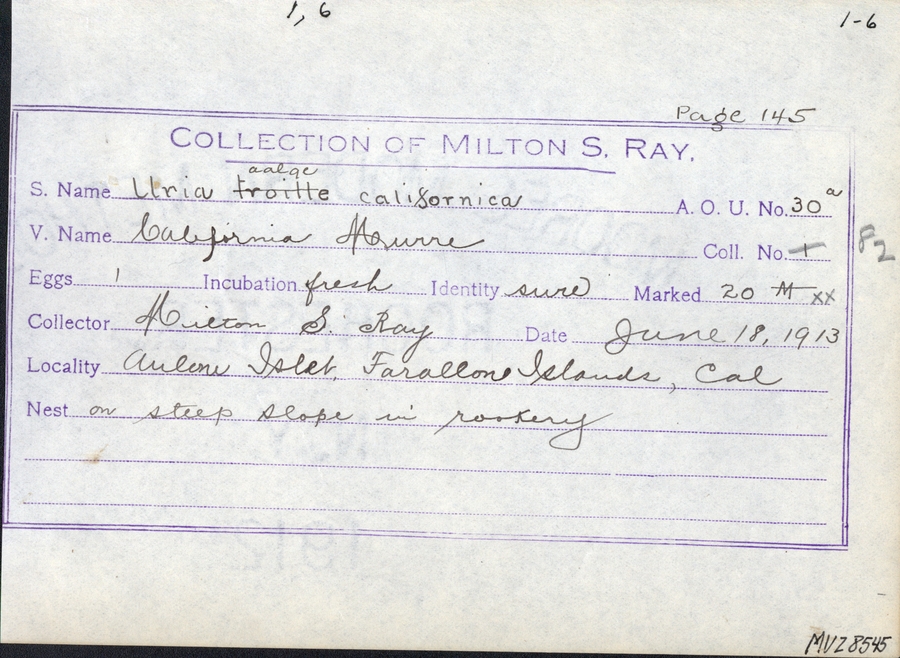 1, 6
1-6
Page 145
COLLECTION OF MILTON S. RAY.
aalge
S. Name Uria troille californica A. O. U. No. 30a
V. Name California Murre Coll. No. 1 82
Eggs 1 Incubation fresh Identity sure Marked 20 M xx
Collector Milton S. Ray Date June 18, 1913
Locality Aulone Islet, Farallone Islands, Cal
Nest on steep slope in rookery
MVZ 8545